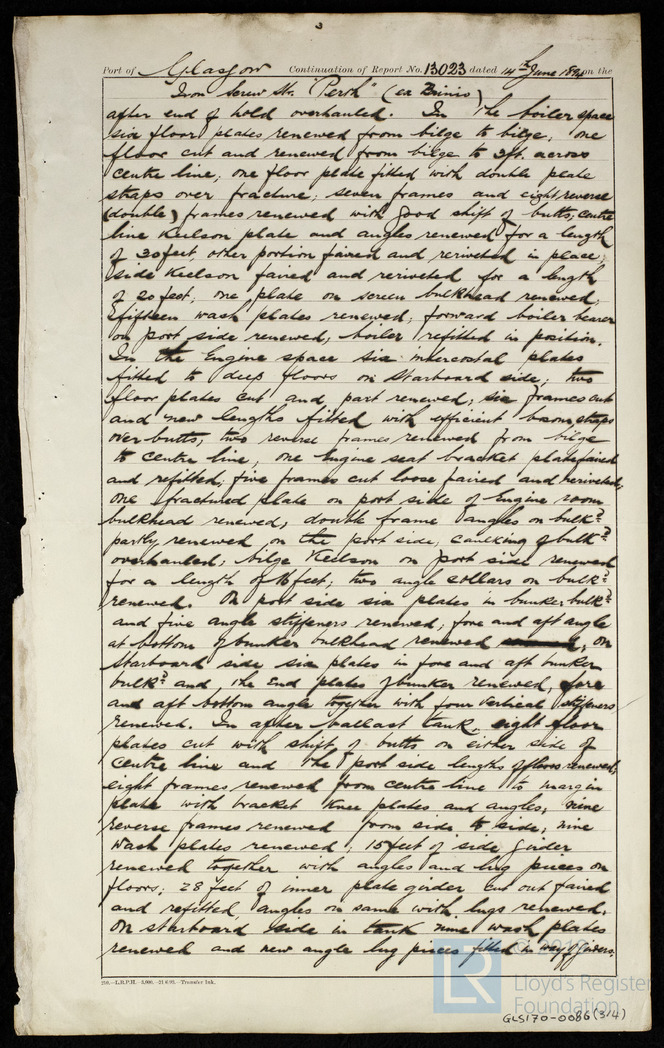 Port of Glasgow Continuation of Report No. 13023 dated 14th June 1894 on the
Iron Screw Str. "Perth" (ex Brinio)
after end of hold overhauled. In the boiler space
six floor plates renewed from bilge to bilge, one
floor cut and renewed from bilge to 2ft. across
centre line, one floor plate fitted with double plate
straps over fracture, seven frames and eight reverse
(double) frames renewed with good shift of butts, centre
line Keelson plate and angles renewed for a length
of 20 feet, other portion faired and reriveted in place,
side Keelson faired and reriveted for a length
of 20 feet, one plate on screen bulkhead renewed,
fifteen wash plates renewed, forward boiler bearer
on port side renewed, boiler refitted in position.
In the Engine space six intercostal plates
fitted to deep floors on Starboard side, two
floor plates cut and part renewed, six frames cut
and new lengths fitted with efficient bosom straps
over butts, two reverse frames renewed from bilge
to centre line, one Engine seat bracket plate faired
and refitted, five frames cut loose faired and reriveted,
one fractured plate on port side of Engine room
bulkhead renewed, double frame angles on bulkd
partly renewed on the port side, caulking of bulkd
overhauled, bilge Keelson on port side renewed
for a length of 16 feet, two angle collars on bulkd
renewed. On port side six plates in bunker bulkd
and five angle stiffeners renewed, fore and aft angle
at bottom of bunker bulkhead renewed, on
Starboard side six plates in fore and aft bunker
bulkd and the End plates of bunker renewed, fore
and aft bottom angle together with four vertical stiffeners
renewed. In after ballast tank eight floor
plates cut with shift of butts on either side of
centre line and the port side lengths of floors renewed,
eight frames renewed from centre line to margin
plate with bracket Knee plates and angles, nine
reverse frames renewed from side to side, nine
wash plates renewed, 15 feet of side girder
renewed together with angles and lug pieces on
floors, 28 feet of inner plate girder cut out faired
and refitted angles on same with lugs renewed.
On starboard side in tank nine wash plates
renewed and new angle lug pieces fitted in way of girders.
Transfer Ink.
© 2019
LR
Lloyd's Register
Foundation
GLS170-0086 (3/4)